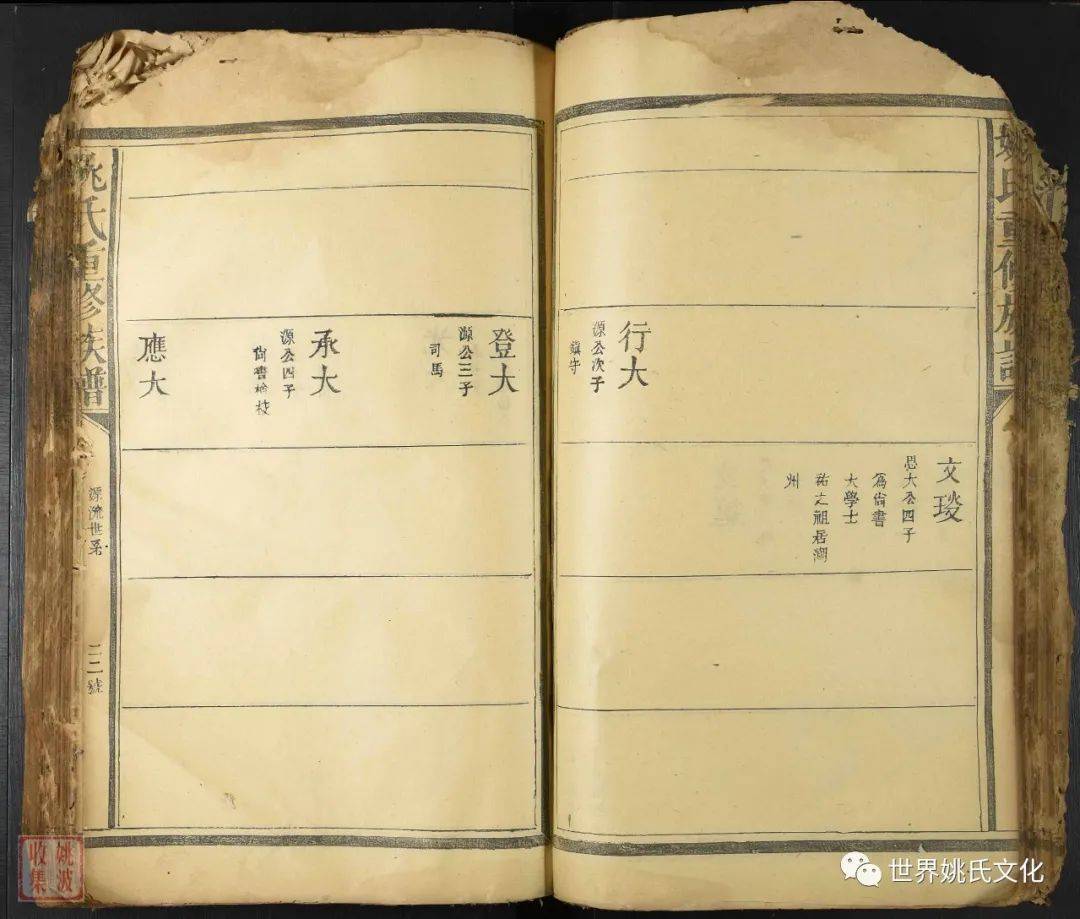 姚氏重修族譜
文琰
思大公四子
爲尙書
大學士
祐之祖居湖
州
行大
源公次子
鎭守
登大
源公三子
司馬
承大
源公四子
尙書檢校
應大
姚氏重修族譜
源流世系
二二號
姚波
收集
世界姚氏文化